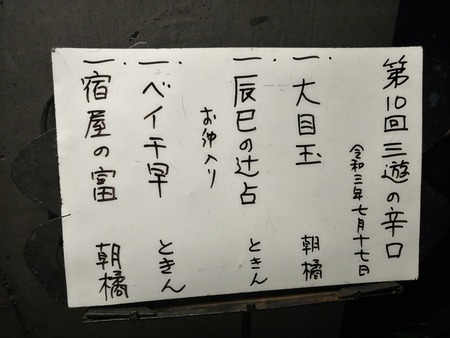 第10回三遊の辛口
令和三年七月十七日
一、大目玉 朝橘
一、辰巳の辻占 ときん
お仲入り
一、ベイ千早 ときん
一、宿屋の富 朝橘